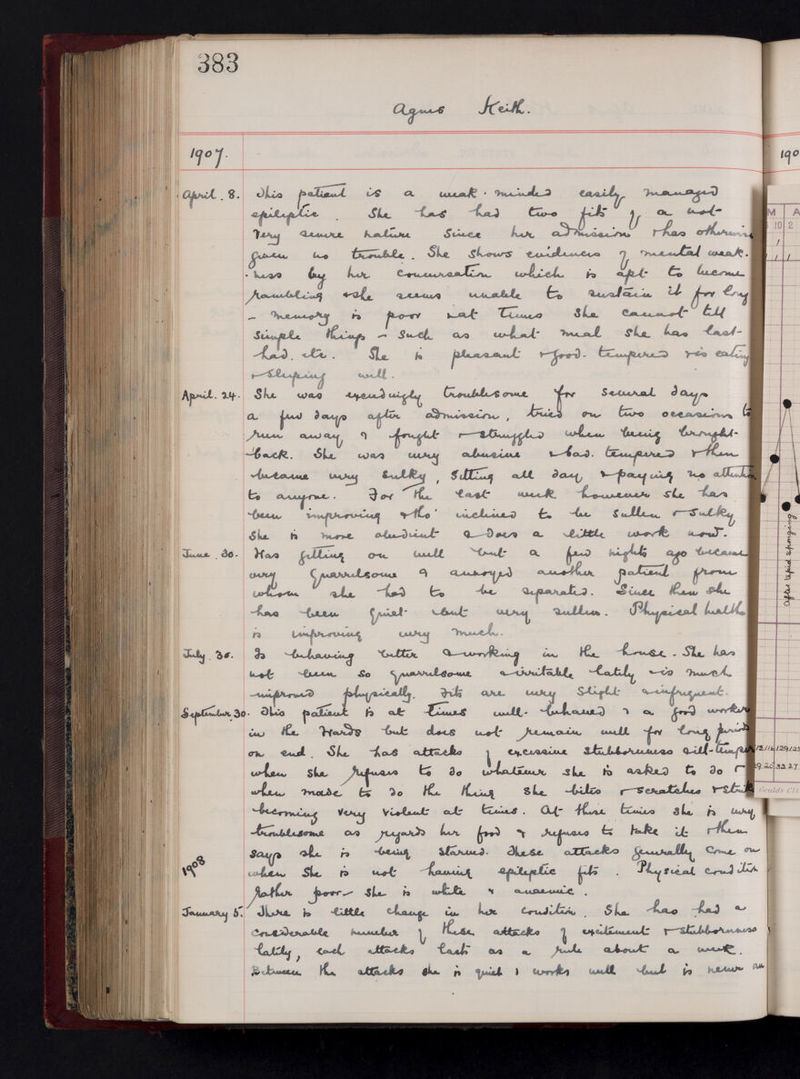 383
Agnes Keith.
1907.
April. 8. This patient is a weak-minded easily managed
epileptic. She has had two fits of a not
very severe nature since her admission & has otherwise
given no trouble. She shows evidences of mental weak-
-ness by her conversation which is apt to become
rambling & she seems unable to sustain it for long
- memory is poor & at times she cannot tell
simple things - such as what meal she has last
had. etc. She is pleasant & good-tempered & is eating
& sleeping well.
April. 24. She was exceedingly troublesome for several days
a few days after admission, tried on two occasions to
run away & fought & struggled when being brought
back. She was very abusive & bad-tempered & then
became very sulky, sitting all day & paying no attention
to anyone. For the last week however she has
been improving & tho' inclined to be sullen & sulky
she is more obedient & does a little work now.
June. 30. Was getting on well but a few nights ago became
very quarrelsome & annoyed another patient from
whom she had to be separated. Since then she
has been quiet but very sullen. Physical health
is improving very much.
July. 30. Is behaving better & working in the house. She has
not been so quarrelsome & irritable lately & is much
improved physically. Fits are very slight & infrequent.
September 30. This patient is at times well-behaved & a good worker
in the Wards but does not remain well for long periods
on end. She has attacks of excessive stubbornness & ill-temper
when she refuses to do whatever she is asked to do &
when made to do the thing she bites & scratches &
becoming very violent at times. At these times she is very
troublesome as regards her food & refuses to take it & then
says she is being starved. These attacks generally come on
when she is not having epileptic fits. Physical condition
rather poor - she is white & anaemic.
1908
January 5. There is little change in her condition. She has had a
considerable number of these attacks of excitement & stubbornness
lately, each attacks lasts as a rule about a week.
Between the attacks she is quiet & works well but is never
190
M A
10 2
After tepid sponging